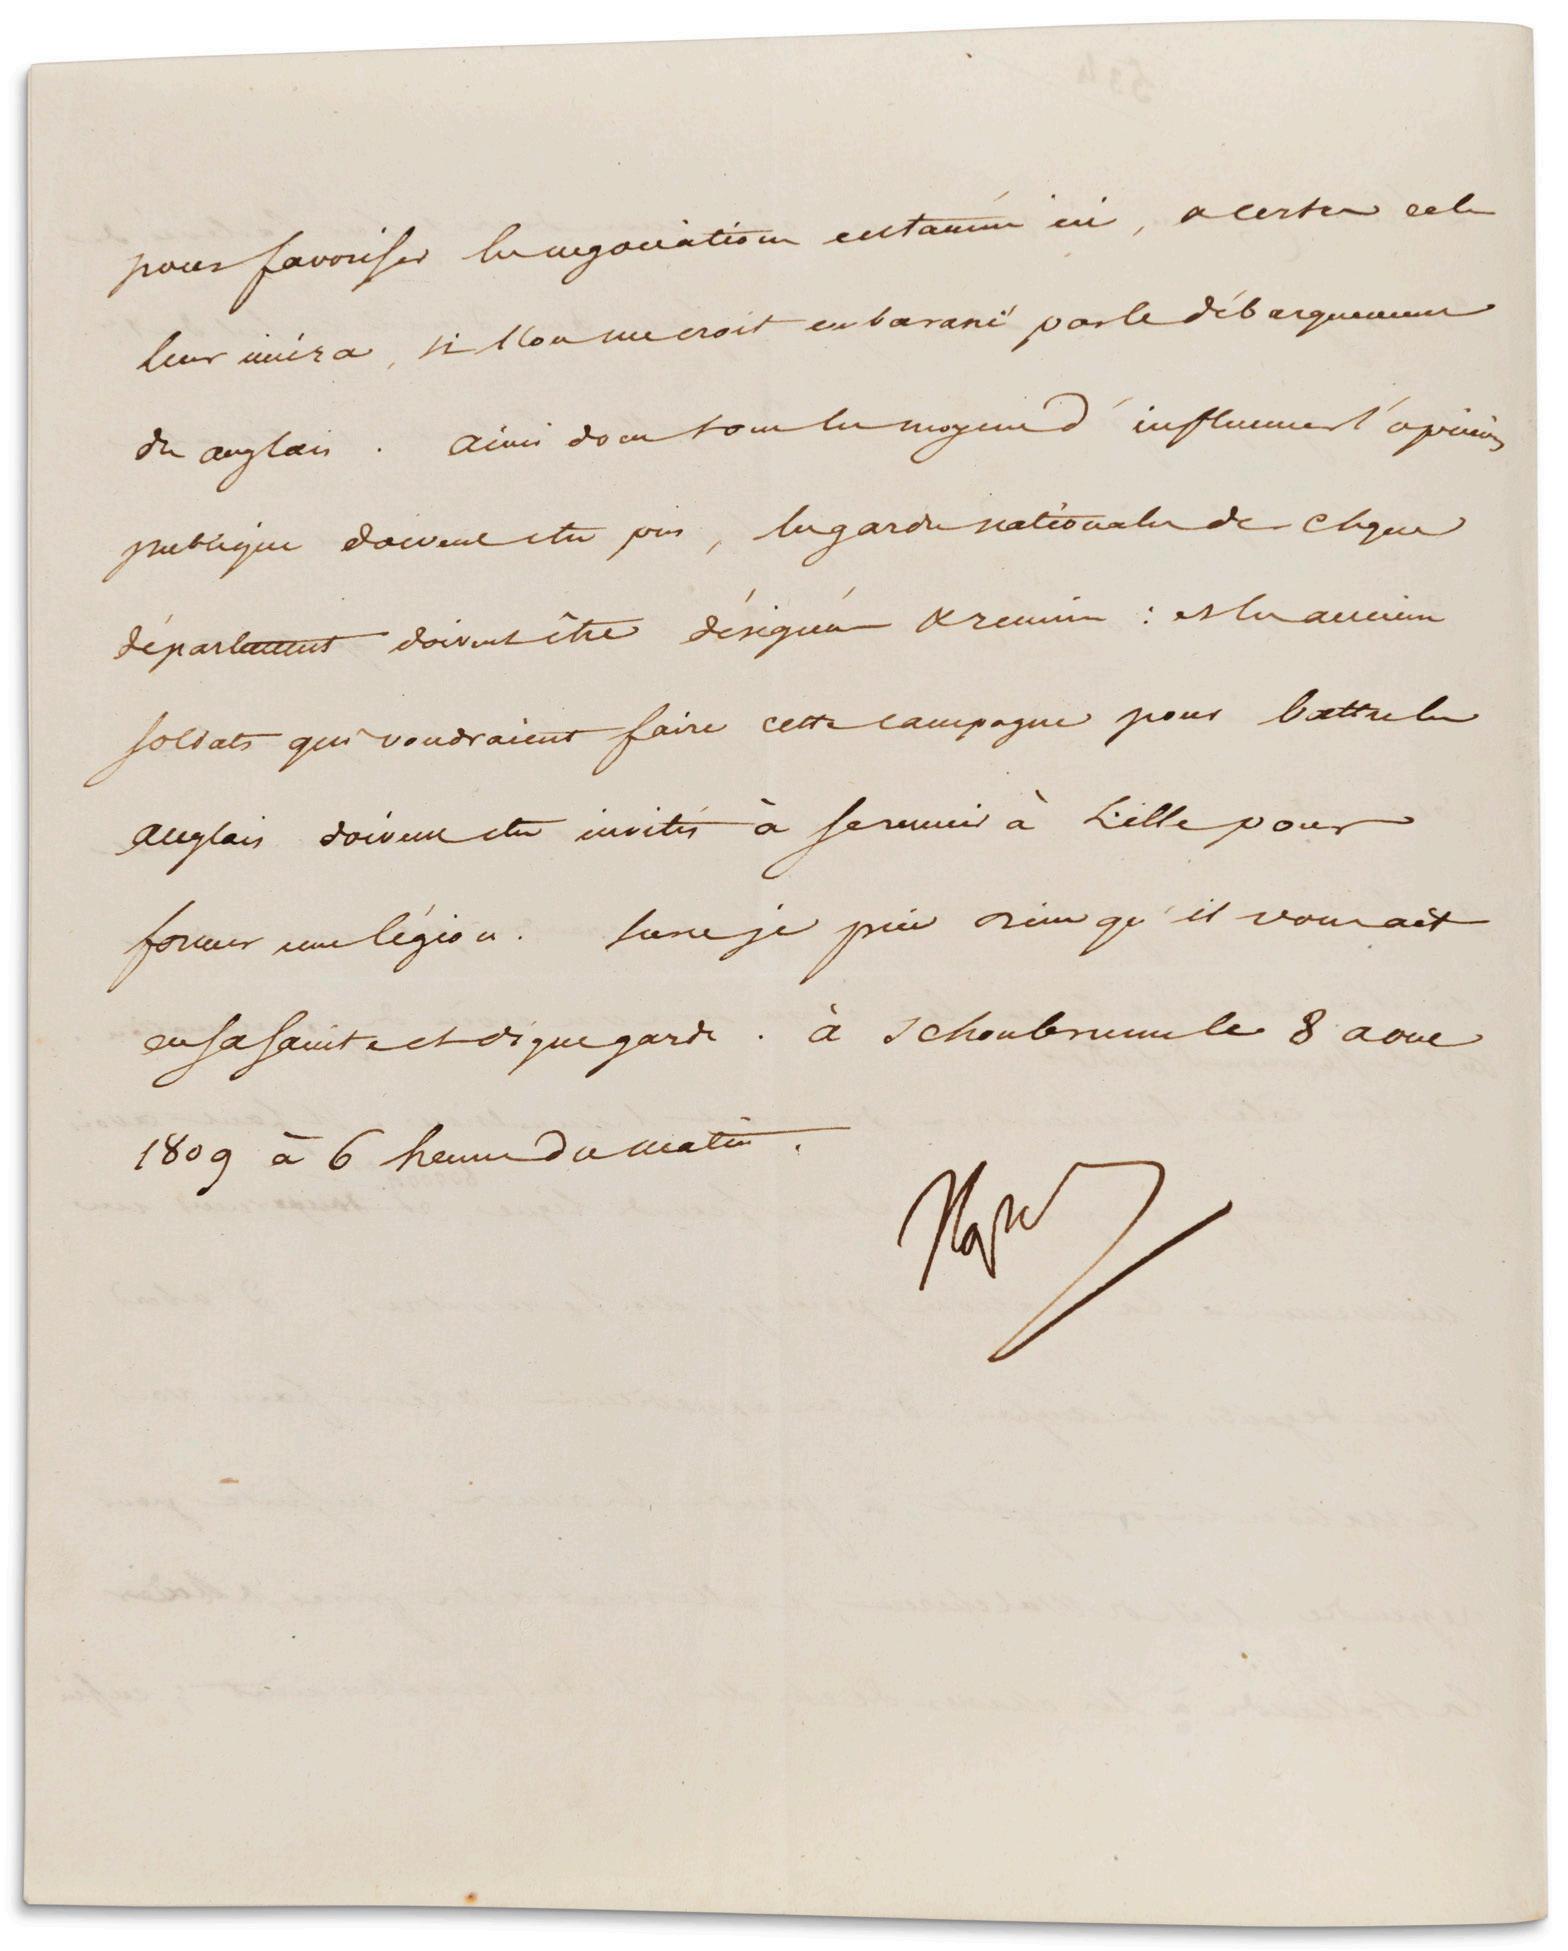 pour favoriser les negociations entamées ici, a certes cela
leur nuira, si l'on me croit embarassé par le débarquement
des anglais. ainsi donc tous les moyens d'influencer l'opinion
publique doivent etre pris, les gardes nationales de chque
département doivent être désignées & reunies : et les anciens
soldats qui voudraient faire cette campagne pour battre les
anglais doivent etre invités à se reunir à Lille pour
former une légion. sur ce je prie dieu qu'il vous ait
en sa sainte et digne garde. à schonbrunn le 8 aout
1809 à 6 heures du matin.
Nap